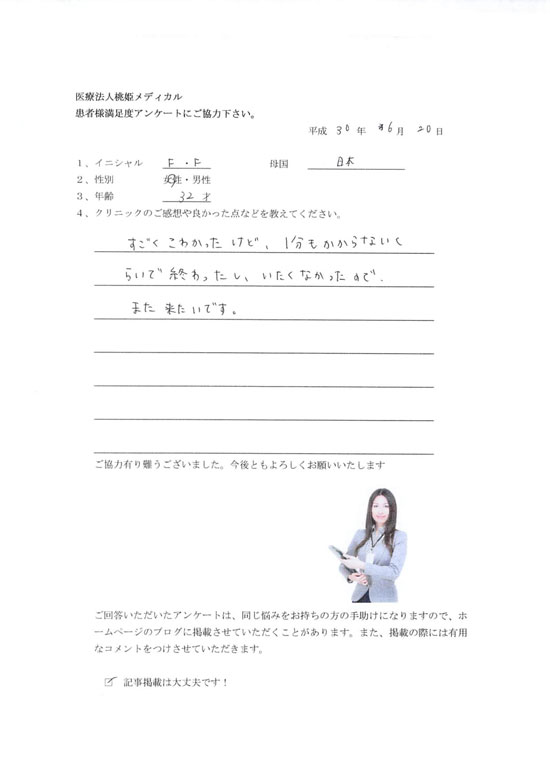 医療法人桃姫メディカル
患者様満足度アンケートにご協力下さい。
平成 30 年 6 月 20 日
1、イニシャル F・F 母国 日本
2、性別 女性・男性
3、年齢 32 才
4、クリニックのご感想や良かった点などを教えてください。
すごく こわかった けど、1分もかからないく
らいで 終わったし、いたくなかったので、
また 来たいです。
ご協力有り難うございました。今後ともよろしくお願いいたします
ご回答いただいたアンケートは、同じ悩みをお持ちの方の手助けになりますので、ホ
ームページのブログに掲載させていただくことがあります。また、掲載の際には有用
なコメントをつけさせていただきます。
☑ 記事掲載は大丈夫です！